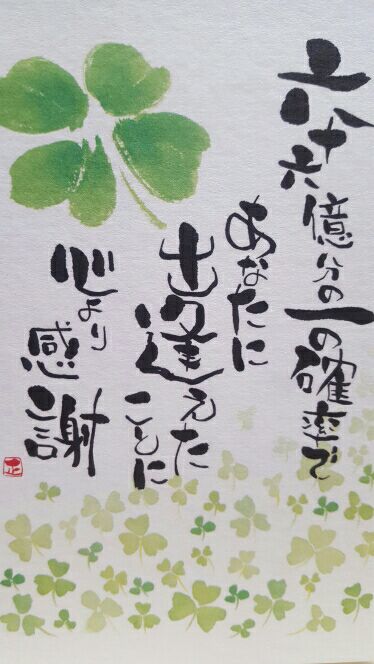 六十六億分の一の確率で
あなたに
出逢えたことに
心より
感謝